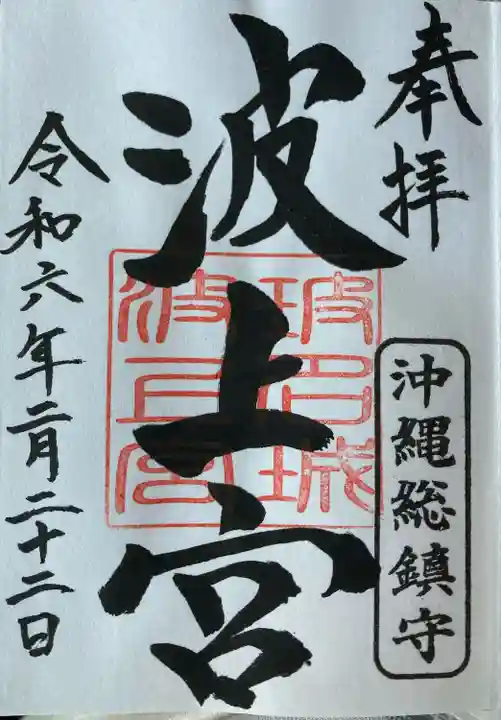 奉拝
沖縄総鎮守
波上宮
令和六年二月二十二日